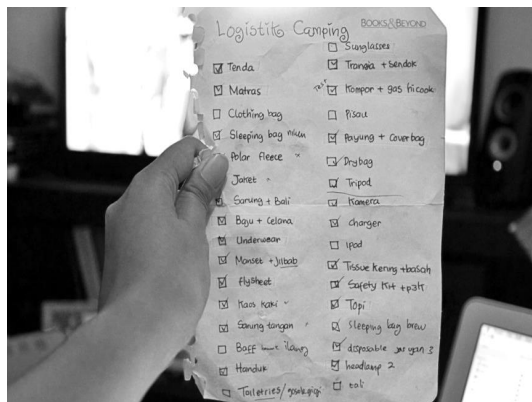 Logistik Camping
BOOKS&BEYOND
Tenda
Matras
Clothing bag
Sleeping bag
Polar fleece
Jaket
Sarung + Bali
Baju + Celana
Underwear
Manset + Jilbab
flysheet
Kaos kaki
Sarung tangan
Baff
Handuk
Toiletries/
Sunglasses
Trangia + Sendok
Kompor + gas hicook
Pisau
Payung + Coverbag
Drybag
Tripod
Kamera
Charger
Ipod
Tissue kering + basah
Safety Kit + p3k
Topi
Sleeping bag brew
disposable
headlamp 2
tali